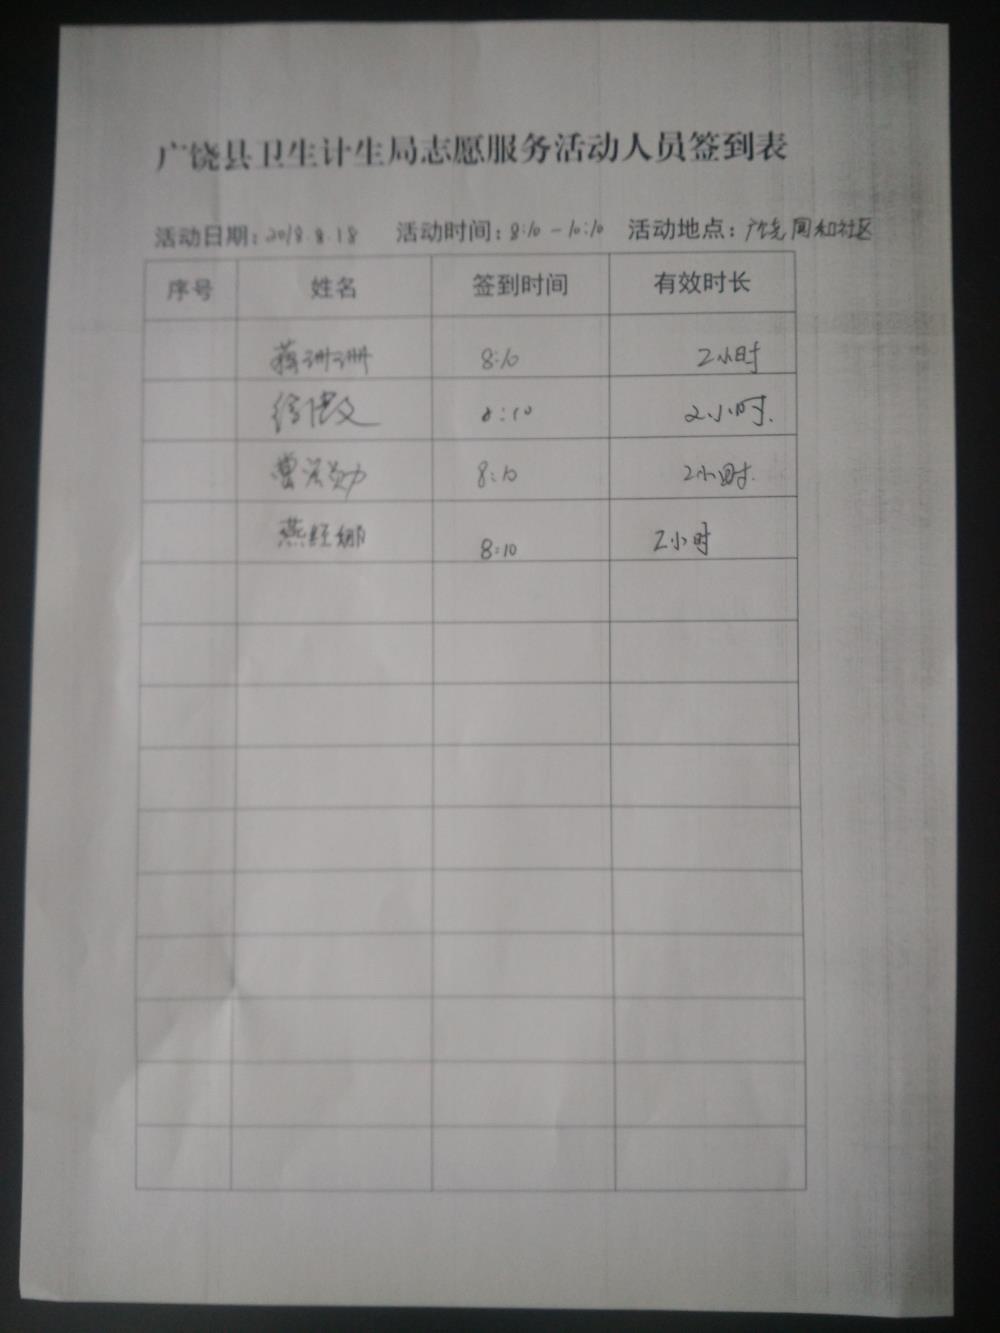 广饶县卫生计生局志愿服务活动人员签到表
活动日期：2018.8.18 活动时间：8:10－10:10 活动地点：广饶同和社区
序号 姓名 签到时间 有效时长
蒋珊珊 8:10 2小时
8:10 2小时.
8:10 2小时.
燕经娜 8:10 2小时